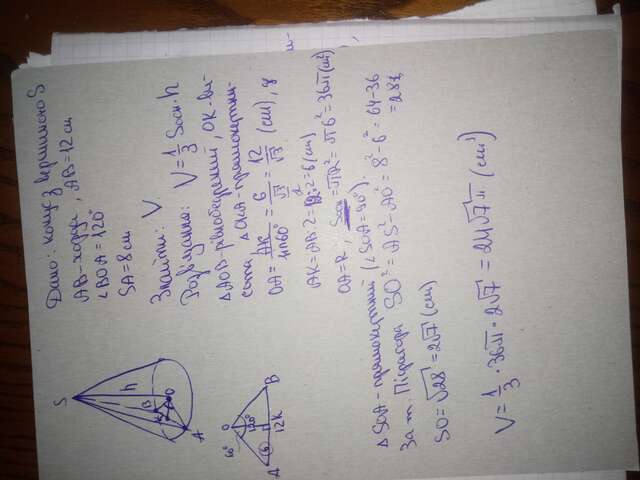 Дано: конус з вершиною S
AB - хорда, AB = 12 см
∠BOA = 120°
SA = 8 см
Знайти: V
Розв'язання: V = 1/3 Sосн · h
△AOB - рівнобедрений, OK - ви-
сота, △OKA - прямокутни-
OA = AK/sin60° = 6/(√3/2) = 12/√3 (см),
AK = AB : 2 = 12 : 2 = 6 (см)
OA = R, Sосн = πR² = π6² = 36π (см²)
△SOA - прямокутний (∠SOA = 90°).
За т. Піфагора SO² = AS² - AO² = 8² - 6² = 64 - 36
= 28,
SO = √28 = 2√7 (см)
V = 1/3 · 36π · 2√7 = 24√7π (см³)
S
h
B
K
O
A
60°
O
120°
A
6
B
12
K